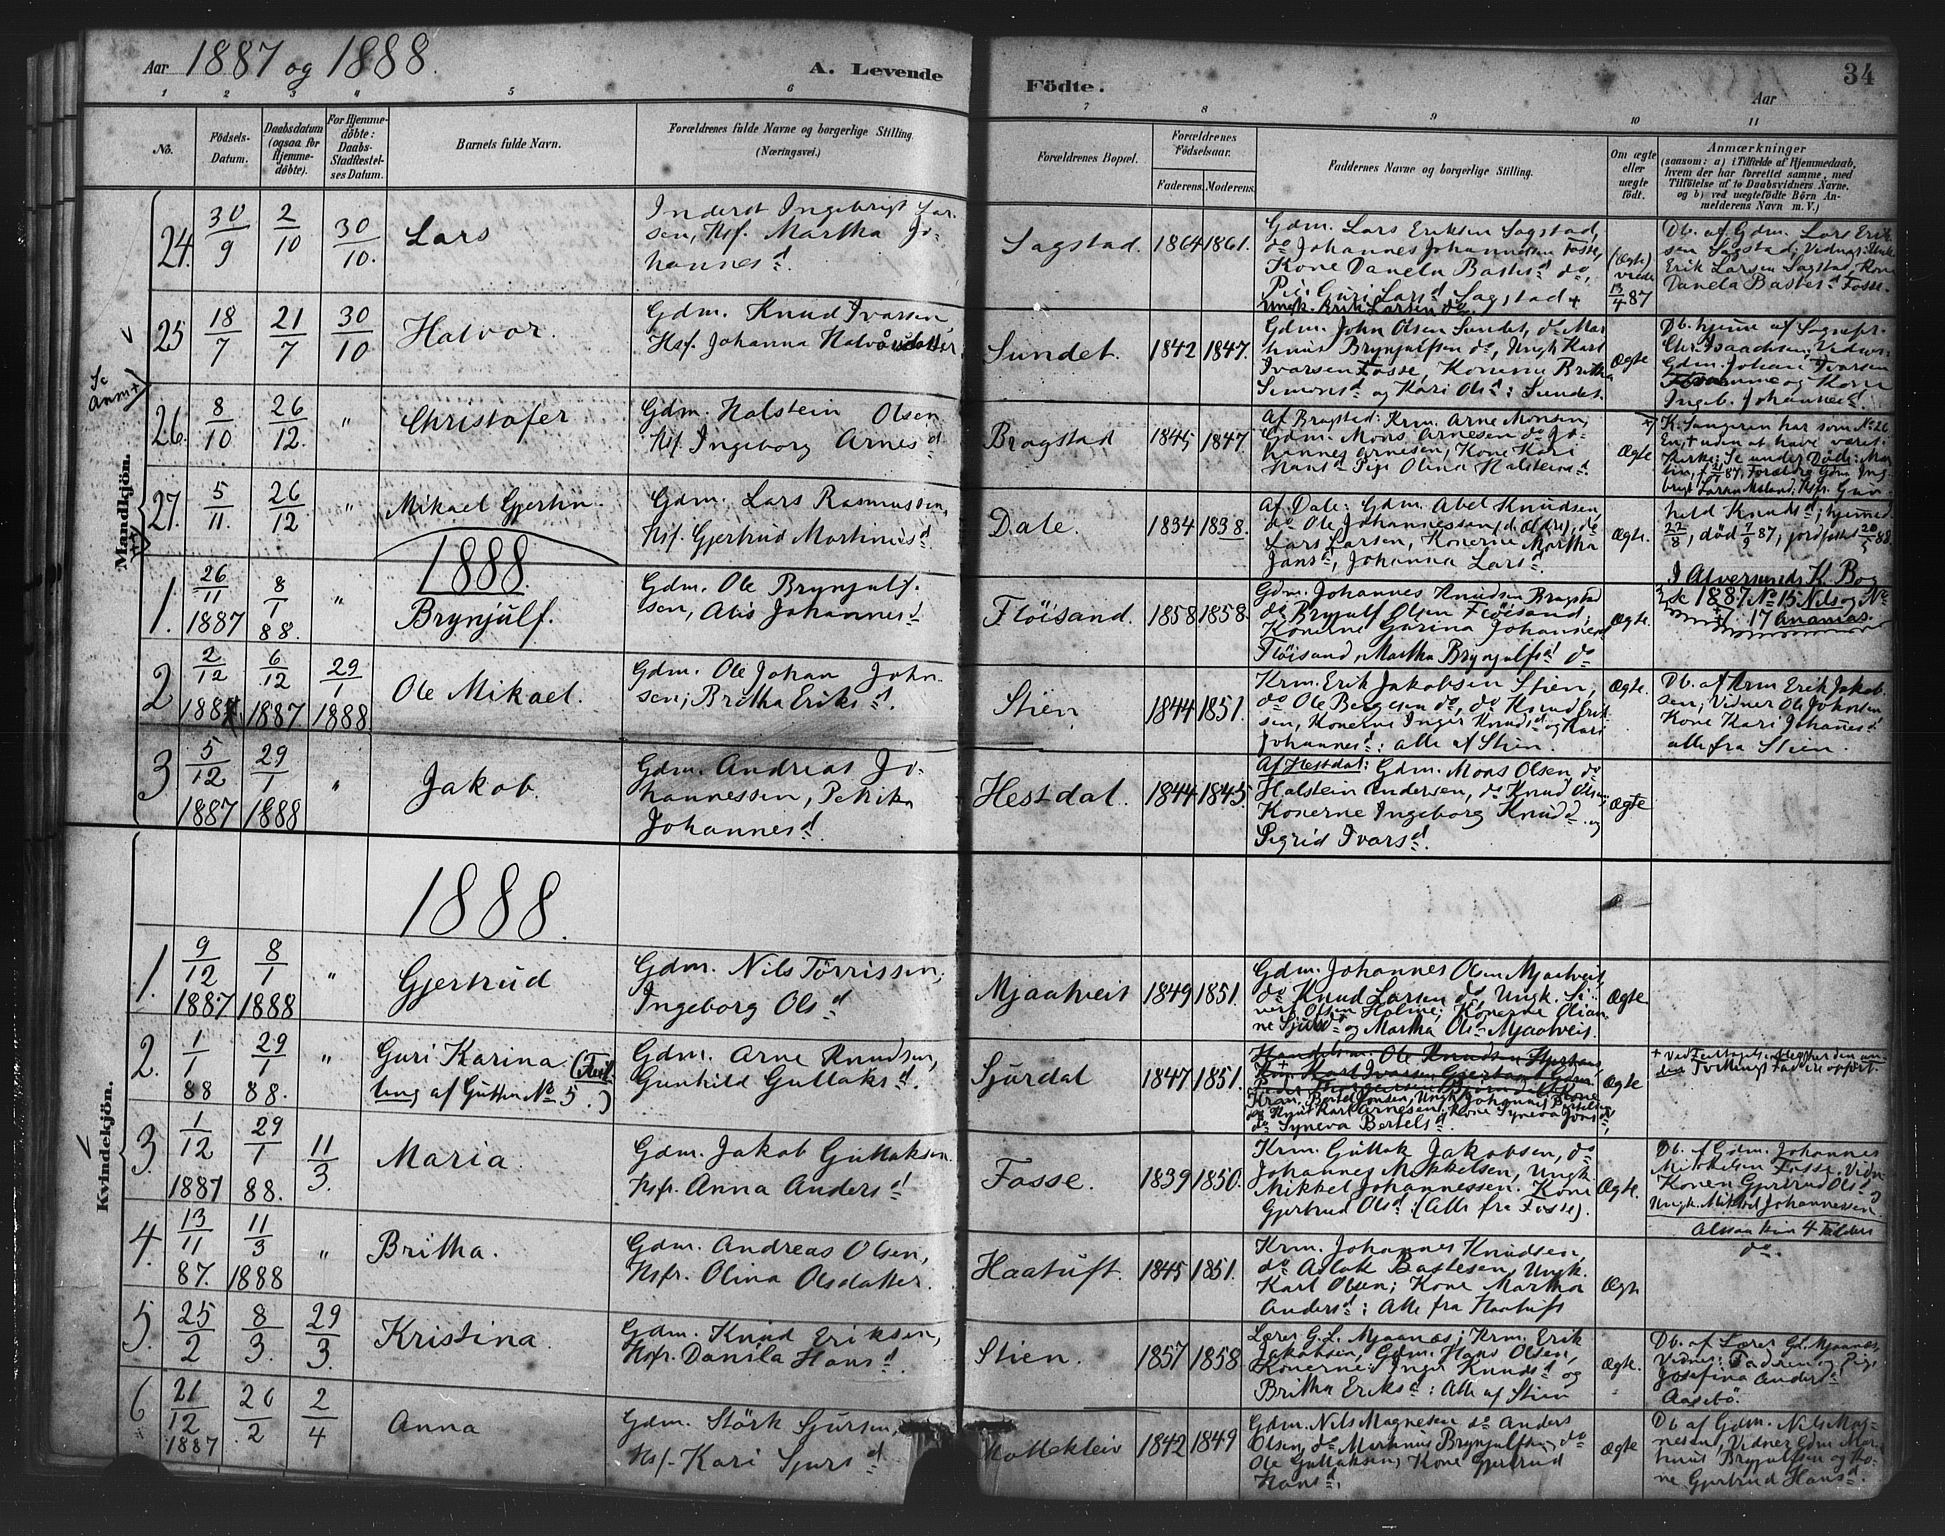 Aar 1887 og 1888.
A. Levende
Födte.
34
Aar
1 2 3 4 5 6 7 8 9 10 11
No.
Födsels-
Datum.
Daabsdatum
(ogsaa for
Hjemme-
döbte).
For Hjemme-
döbte:
Daabs-
Stadfæstel-
ses Datum.
Barnets fulde Navn.
Forældrenes fulde Navne og borgerlige Stilling.
(Næringsvei.)
Forældrenes Bopæl.
Forældrenes
Födselsaar.
Faderens. Moderens.
Faddernes Navne og borgerlige Stilling.
Om ægte
eller
uægte
födt.
Anmærkninger
(saasom: a) i Tilfælde af Hjemmedaab,
hvem der har forrettet samme, med
Tilföielse af to Daabsvidners Navne.
og b) ved uægtefödte Börn An-
melderens Navn m. V.)
Mandkjön.
24. 30/9 2/10 30/10. Lars
Inderst Ingebrigt Lar-
sen, Hsf. Martha Jo-
hannesd.
Sagstad. 1864 1861.
Gdm. Lars Eriksen Sagstad,
do Johannes Johannesen Fosse,
Kone Danela Bastesd do,
Pige Guri Larsd Sagstad +
Ungk. Erik Larsen do.
(Ægte)
viede
13/4 87
Db. af Gdm. Lars Erik-
sen Sagstad; Vidner: Ungk.
Erik Larsen Sagstad, Kone
Danela Bastesd Fosse.
25 18/7 21/7 30/10 Halvor.
Gdm. Knud Ivarsen,
Hsf. Johanna Halvorsdatter
Sundet. 1842 1847.
Gdm. John Olsen Sundet, do Mar-
thinus Brynjulfsen do, Ungk Karl
Ivarsen Fosse, Konerne Britha
Simonsd og Kari Olsd: Sundet.
Ægte
Db. hjeme af Sognepr.
Chr. Isaachsen; Vidner:
Gdm. Johan Ivarsen
og Kone
Ingeb. Johannesd.
Se
Anm+
26. 8/10 26/12. " Christofer
Gdm. Halstein Olsen,
Hsf. Ingeborg Arnesd
Bragstad 1845 1847.
Af Bragstad: Krm. Arne Monsen,
Gdm. Mons Arnesen do Jo-
hannes Arnesen, Kone Kari
Hansd Pige Olina Halsteinsd.
Ægte
K. Sangeren har som No 26
En, + uden at have været i
Kirke: Se under Døde: Mar-
tin, + 87, Foræld: Gdm Ing-
brigt Larsen Mæland, Hsfr. Gun-
hild Knudsd; hjemmed.
22/8, død 7/9 87, jordfæstet 20/5 88.
27. 5/11. 26/12 " Mikael Gjertin.
Gdm. Lars Rasmussen,
Hsf. Gjertrud Martinusd.
Dale. 1834 1838.
Af Dale: Gdm. Abel Knudsen,
do Ole Johannessen (d. ældre), do
Lars Larsen, Konerne Martha
Jansd, Johanna Larsd.
Ægte.
1888.
1. 26/11 1887 8/1 88. " Brynjulf.
Gdm. Ole Brynjulf-
sen, Alis Johannesd
Flöisand. 1858 1858.
Gdm. Johannes Knudsen Bragstad
do Brynjulf Olsen Flöisand,
Konerne Gurina Johannesd
Flöisand, Martha Brynjulfsd do
Ægte.
I Alversunds K. Bog
Se 1887 No 15 Nils og No
17 Ananias.
2 2/12 1887 6/12 1887 29/1 1888. Ole Mikael.
Gdm. Ole Johan John-
sen, Britha Eriksd.
Stien. 1844 1851.
Krm. Erik Jakobsen Stien,
do Ole Bergesen do, do Knud Erik-
sen, Konerne Inger Knudsd og Kari
Johannesd: Alle af Stien.
Ægte.
Db. af Krm Erik Jakob-
sen; Vidner Ole Johnsen
Kone Kari Johannesd
alle fra Stien.
3 5/12 1887 29/1 1888 " Jakob.
Gdm. Andreas Jo-
hannessen, Petrika
Johannesd.
Hestdal. 1844 1845.
Af Hestdal: Gdm. Mons Olsen, do
Halstein Andersen, do Knud Olsen,
Konerne Ingeborg Knudd. og
Sigrid Ivarsd.
Ægte
Kvindekjön.
1888.
1. 9/12 1887 8/1 1888 " Gjertrud
Gdm. Nils Törrissen,
Ingeborg Olsd
Mjaatveit 1849 1851.
Gdm. Johannes Olsen Mjaatveit,
do Knud Larsen do, Ungk. Si-
vert Olsen Holme; Konerne Olian-
ne Sjursd og Martha Olsd Mjaatveit.
Ægte
2. 1/1 88 29/1 88. " Guri Karina (Tvil-
ling af Gutten No 5.)
Gdm. Arne Knudsen,
Gunhild Guttaksd.
Sjurdal 1847 1851.
Handelsm. Ole Knudsen
Krm. Bertel Jonsen, Ungk. Johannes Bertelsen
do Karl Arnesen, Kone Syneva Jonsd,
do Syneva Bertelsd.
Ægte
3. 1/12 1887 29/1 88. 11/3. Maria.
Gdm. Jakob Guttaksen.
Hsfr. Anna Andersd
Fosse. 1839 1850.
Krm. Guttak Jakobsen, do
Johannes Mikkelsen, Ungk.
Mikkel Johannessen. Kone
Gjertrud Olsd: (Alle fra Fosse).
Ægte.
Db. af Gdm. Johannes
Mikkelsen Fosse. Vidn.
Konen Gjertrud Olsd
Ungk. Mikkel Johannessen.
Altsaa kun 4 Faddere
4. 13/11 87. 11/3 1888 " Britha.
Gdm. Andreas Olsen,
Hsfr. Olina Olsdatter.
Haatuft. 1845 1851.
Krm. Johannes Knudsen,
do Aslak Bastesen, Ungk.
Karl Olsen; Kone Martha
Andersd: Alle fra Haatuft
Ægte
do.
5. 25/2 8/3. 29/3. Kristina.
Gdm. Knud Eriksen,
Hsfr. Danila Hansd.
Stien. 1857 1858
Lærer G. L. Mjaanæs; Krm. Erik
Jakobsen, Gdm. Hans Olsen,
Konerne: Inger Knudsd og
Britha Eriksd: Alle af Stien
Ægte.
Db. af Lærer G. L. Mjaanæs,
Vidner: Fadren og Pige
Josefina Andersd
Aasebö.
6 21/12 1887 26/2 2/4 Anna
Gdm. Störk Sjursen,
Hsf. Kari Sjursd
1842 1849
Gdm. Nils Magnesen do Anders
Olsen, do Martinus Brynjulfsen, do
Ole Guttaksen, Kone Gjertrud
Hansd.
Ægte
Db af Gdm. Nils Mag-
nesen, Vidner Gdm Mar-
thinus Brynjulfsen og Ko-
ne Gjertrud Hansd.